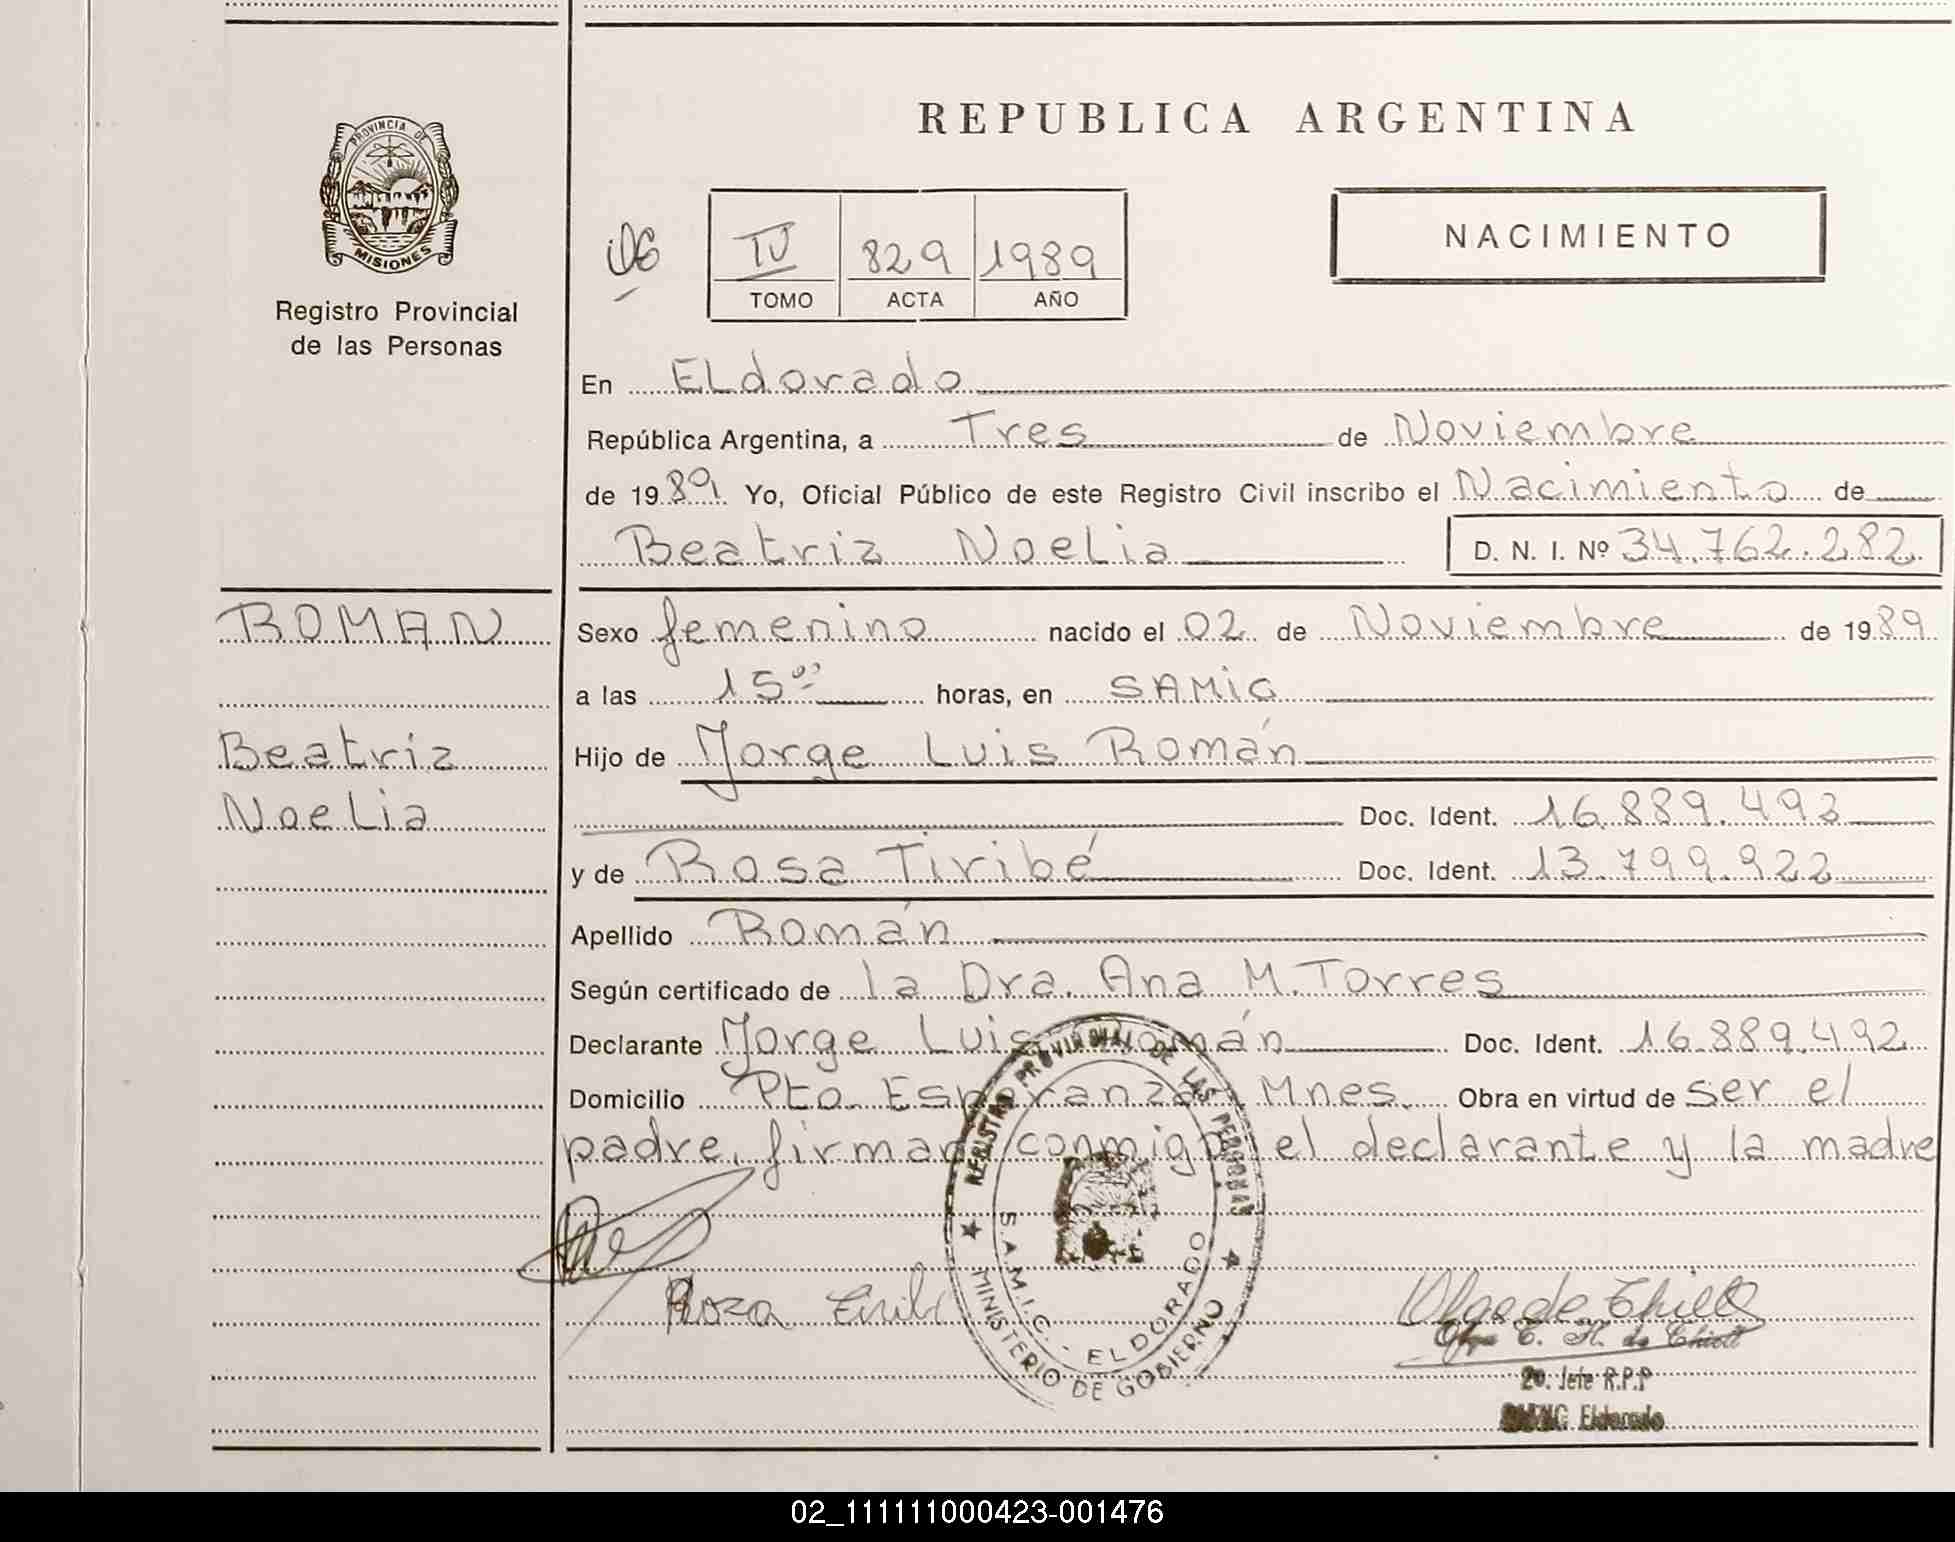 REPUBLICA ARGENTINA
PROVINCIA DE
MISIONES
Registro Provincial
de las Personas
IV 829 1989
TOMO ACTA AÑO
NACIMIENTO
En Eldorado
República Argentina, a Tres de Noviembre
de 1989 Yo, Oficial Público de este Registro Civil inscribo el Nacimiento de
Beatriz Noelia D. N. I. Nº 34.762.282
ROMAN
Beatriz
Noelia
Sexo femenino nacido el 02 de Noviembre de 1989
a las 15 horas, en SAMIC
Hijo de Jorge Luis Román
Doc. Ident.
y de Rosa Tiribé Doc. Ident. 13.799.922
Apellido Román
Según certificado de la Dra. Ana M. Torres
Declarante Jorge Luis Román Doc. Ident. 16.889.492
Domicilio Pto. Esperanza Mnes. Obra en virtud de ser el
padre, firman conmigo el declarante y la madre
REGISTRO PROVINCIAL DE LAS PERSONAS
S.A.M.I.C. - ELDORADO
MINISTERIO DE GOBIERNO
Olga de Chielt
2o. Jefe R.P.P
Eldorado
02_111111000423-001476